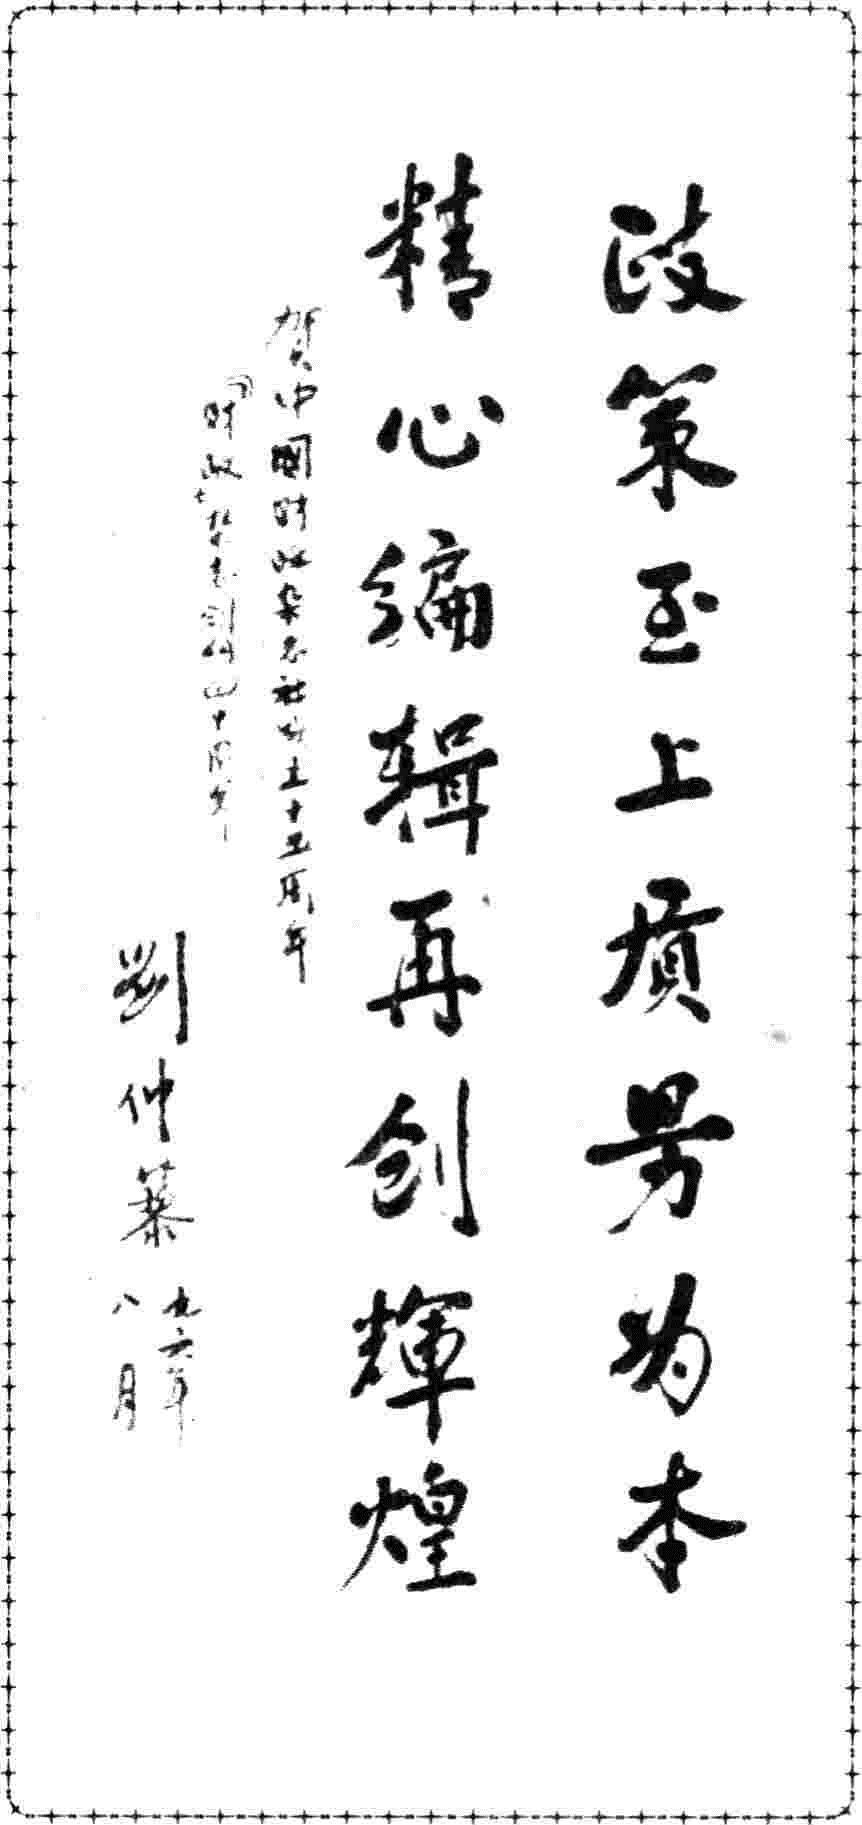 政策至上质量为本
精心编辑再创辉煌
贺中国财政杂志社成立十五周年
《财政》杂志创刊四十周年
刘仲藜
九六年
八月